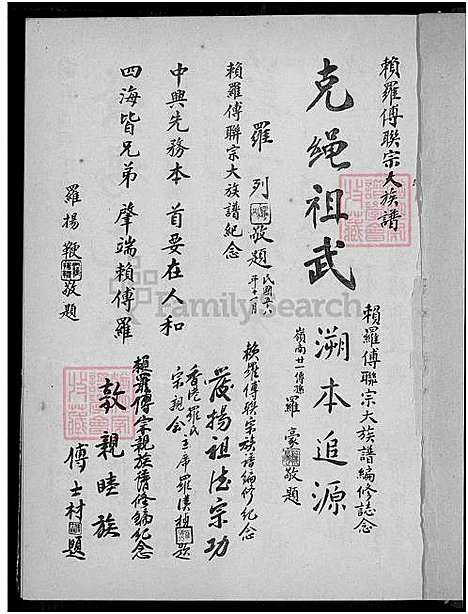 賴羅傅聯宗大族譜
克繩祖武
羅列敬題
民國五八年十一月
賴羅傅聯宗大族譜紀念
中興先務本 首要在人和
四海皆兄弟 肇端賴傅羅
羅揚鞭敬題
賴羅傅聯宗大族譜編修誌念
溯本追源
嶺南廿一傳孫 羅豪敬題
賴羅傅聯宗族譜編修紀念
發揚祖德宗功
香港羅氏宗親會
主席羅漢楨題
賴羅傅宗親族譜修編紀念
敦親睦族
傅士材題
FamilySearch